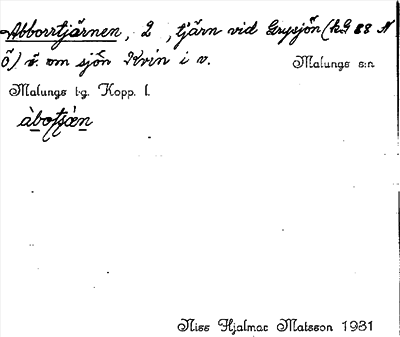 Abborrtjärnen, 2, tjärn vid Grysjön (kG 88 N
Ö) s. om sjön Kvin i v.
Malungs s:n
Malungs tg. Kopp. l.
àbotjæ̀n
Niss Hjalmar Matsson 1931